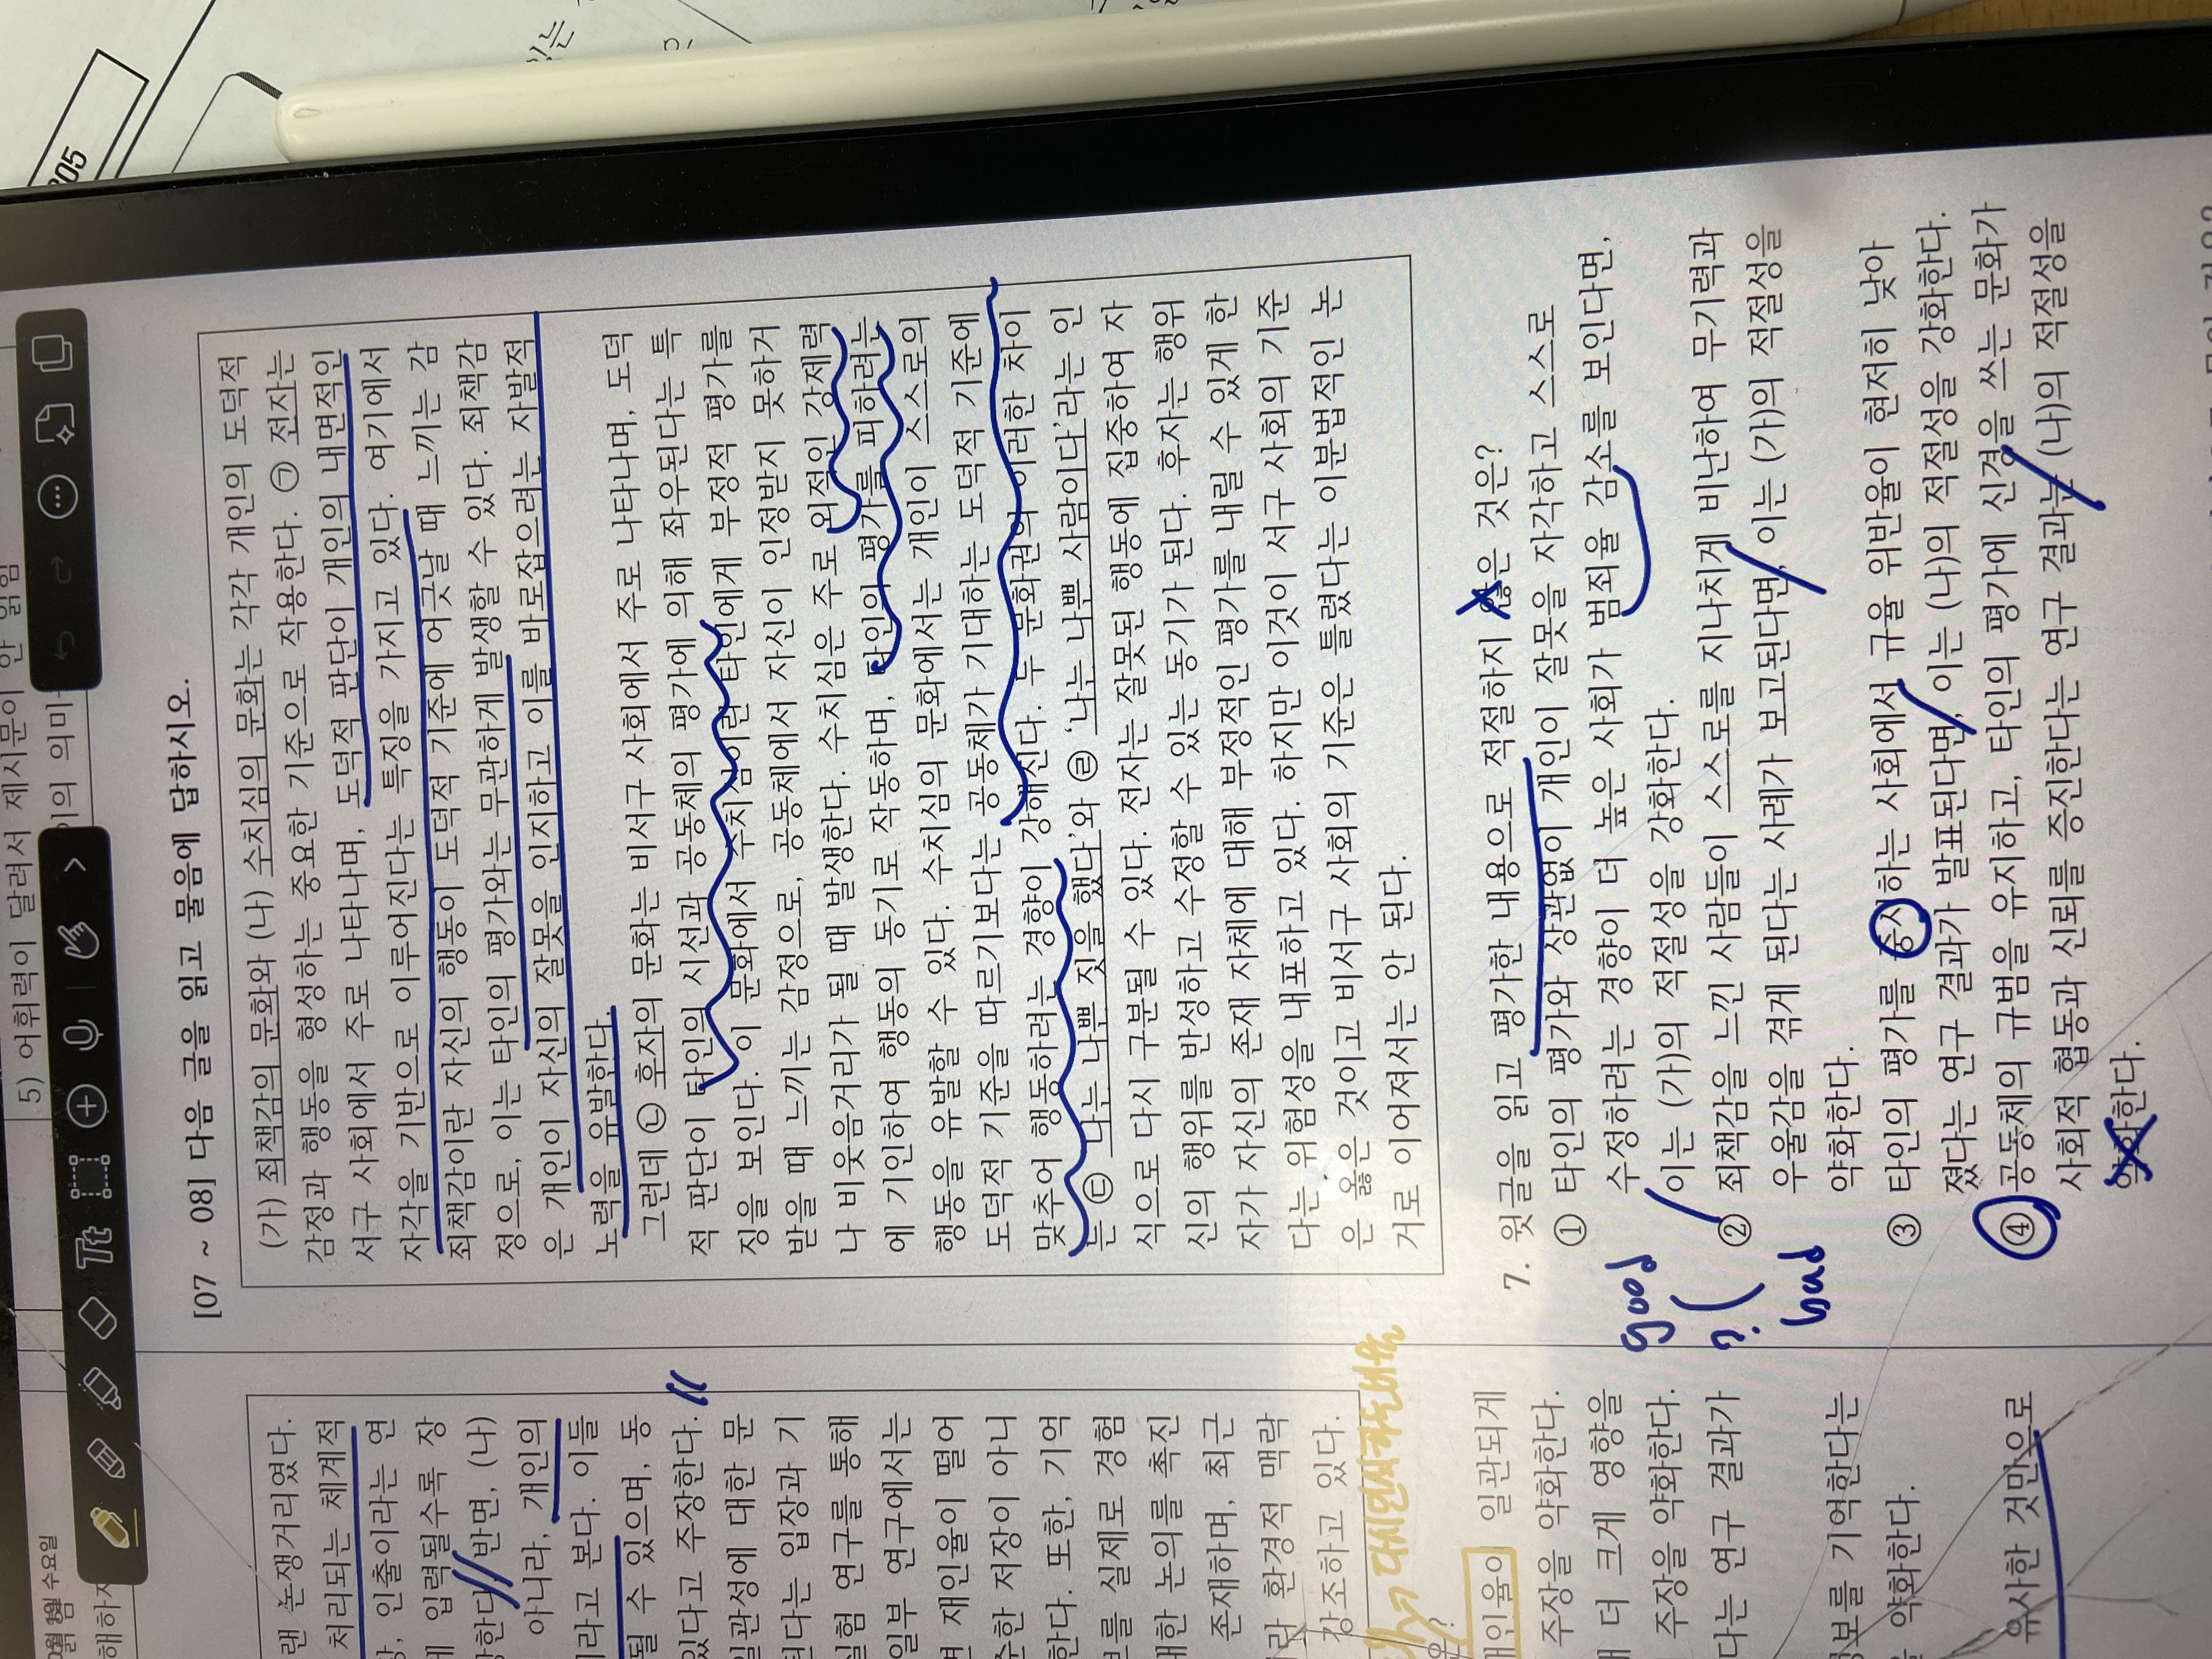 305
있는
5) 어휘력이 달려서 제시문이 안 읽힘
의 의미
수요일
해하
[07 ~ 08] 다음 글을 읽고 물음에 답하시오.
(가) 죄책감의 문화와 (나) 수치심의 문화는 각각 개인의 도덕적
감정과 행동을 형성하는 중요한 기준으로 작용한다. ㉠ 전자는
서구 사회에서 주로 나타나며, 도덕적 판단이 개인의 내면적인
자각을 기반으로 이루어진다는 특징을 가지고 있다. 여기에서
죄책감이란 자신의 행동이 도덕적 기준에 어긋날 때 느끼는 감
정으로, 이는 타인의 평가와는 무관하게 발생할 수 있다. 죄책감
은 개인이 자신의 잘못을 인지하고 이를 바로잡으려는 자발적
노력을 유발한다.
그런데 ㉡ 후자의 문화는 비서구 사회에서 주로 나타나며, 도덕
적 판단이 타인의 시선과 공동체의 평가에 의해 좌우된다는 특
징을 보인다. 이 문화에서 수치심이란 타인에게 부정적 평가를
받을 때 느끼는 감정으로, 공동체에서 자신이 인정받지 못하거
나 비웃음거리가 될 때 발생한다. 수치심은 주로 외적인 강제력
에 기인하여 행동의 동기로 작동하며, 타인의 평가를 피하려는
행동을 유발할 수 있다. 수치심의 문화에서는 개인이 스스로의
도덕적 기준을 따르기보다는 공동체가 기대하는 도덕적 기준에
맞추어 행동하려는 경향이 강해진다. 두 문화권의 이러한 차이
는 ㉢ '나는 나쁜 짓을 했다'와 ㉣ '나는 나쁜 사람이다'라는 인
식으로 다시 구분될 수 있다. 전자는 잘못된 행동에 집중하여 자
신의 행위를 반성하고 수정할 수 있는 동기가 된다. 후자는 행위
자가 자신의 존재 자체에 대해 부정적인 평가를 내릴 수 있게 한
다는 위험성을 내포하고 있다. 하지만 이것이 서구 사회의 기준
은 옳은 것이고 비서구 사회의 기준은 틀렸다는 이분법적인 논
거로 이어져서는 안 된다.
7. 윗글을 읽고 평가한 내용으로 적절하지 않은 것은?
① 타인의 평가와 상관없이 개인이 잘못을 자각하고 스스로
수정하려는 경향이 더 높은 사회가 범죄율 감소를 보인다면,
이는 (가)의 적절성을 강화한다.
② 죄책감을 느낀 사람들이 스스로를 지나치게 비난하여 무기력과
우울감을 겪게 된다는 사례가 보고된다면, 이는 (가)의 적절성을
약화한다.
③ 타인의 평가를 중시하는 사회에서 규율 위반율이 현저히 낮아
졌다는 연구 결과가 발표된다면, 이는 (나)의 적절성을 강화한다.
④ 공동체의 규범을 유지하고, 타인의 평가에 신경을 쓰는 문화가
사회적 협동과 신뢰를 증진한다는 연구 결과는 (나)의 적절성을
약화한다.
good
?
bad
랜 논쟁거리였다.
처리되는 체계적
, 인출이라는 연
입력될수록 장
한다. 반면, (나)
아니라, 개인의
라고 본다. 이들
될 수 있으며, 동
있다고 주장한다.
일관성에 대한 문
된다는 입장과 기
실험 연구를 통해
일부 연구에서는
재인율이 떨어
수한 저장이 아니
한다. 또한, 기억
를 실제로 경험
대한 논의를 촉진
존재하며, 최근
환경적 맥락
강조하고 있다.
재인율이 일관되게
주장을 약화한다.
더 크게 영향을
주장을 약화한다.
다는 연구 결과가
정보를 기억한다는
약화한다.
유사한 것만으로